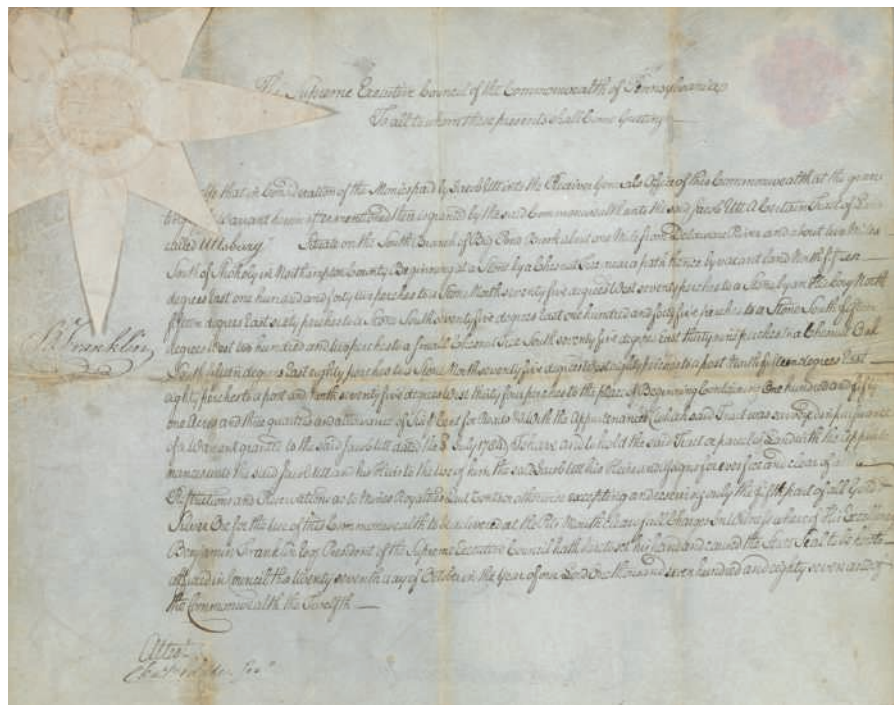 The Supreme Executive Council of the Commonwealth of Pennsylvania
To all to whom these presents shall Come Greeting
that in Consideration of the Monies paid by Jacob Utt into the Receiver Generals Office of this Commonwealth at the gran
ting Warrant herein aftermentioned there is granted by the said Commonwealth unto the said Jacob Utt A Certain Tract of Land
called Uttsbury Situate on the South Branch of Big Pond Brook about one Mile from Delaware River and about two Miles
South of in Northampton County Beginning at a Stone by a Chesnut Tree near a path thence by vacant land North fifteen
degrees East one hundred and forty two perches to a Stone North seventy five degrees West seventy perches to a Stone by North
fifteen degrees East sixty perches to a Stone South seventy five degrees East one hundred and forty five perches to a Stone South fifteen
degrees West two hundred and two perches to a Small Chesnut Tree South seventy five degrees East thirty nine perches to a Chesnut Oak
South fifteen degrees East eighty perches to a Stone North seventy five degrees West eighty perches to a post North fifteen degrees East
eighty perches to a post and North seventy five degrees West thirty four perches to the place of Beginning Containing One hundred and fifty
one Acres and three quarters and allowance of Six Cent for Roads &c With the Appurtenances (which said Tract was surveyed in pursuance
of a Warrant granted to the said Jacob Utt dated the 8 July 1784) To have and to hold the said Tract or parcel of Land with the Appurte
nances unto the said Jacob Utt and his Heirs to the use of him the said Jacob Utt his Heirs and Assigns for ever free and clear of all
Restrictions and Reservations as to Mines Royalties Quit rents or otherwise excepting and reserving only the fifth part of all Gold
Silver Ore for the use of this Commonwealth to be delivered at the Pits Mouth Clear of all Charges In Witness whereof His Excellency
Benjamin Franklin Esq President of the Supreme Executive Council hath hereto set his hand and caused the State Seal to be hereto
affixed in Council the twenty seventh day of October in the Year of our Lord One thousand seven hundred and eighty seven and of
the Commonwealth the Twelfth
B Franklin
Attest
Chas Biddle Secy